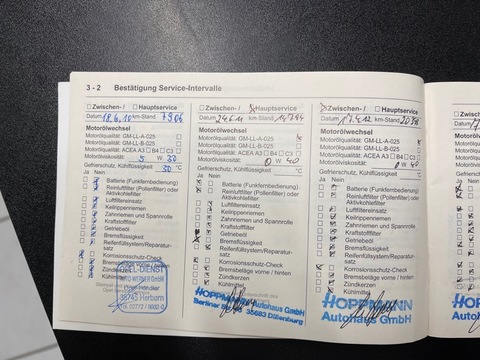 3 - 2 Bestätigung Service-Intervalle
Zwischen- / Hauptservice
Datum 18.6.10 km-Stand 7906
Motorölwechsel
Motorölqualität: GM-LL-A-025
GM-LL-B-025
Motorölqualität: ACEA A3 B4 C3
Motorviskosität: 5 W 30
Gefrierschutz, Kühlflüssigkeit: 30 °C
Ja Nein
Batterie (Funkfernbedienung)
Reinluftfilter (Pollenfilter) oder
Aktivkohlefilter
Luftfiltereinsatz
Keilrippenriemen
Zahnriemen und Spannrolle
Kraftstofffilter
Getriebeöl
Bremsflüssigkeit
Reifenfüllsystem/Reparatur-
satz
Korrosionsschutz-Check
Bremsbeläge vorne / hinten
Zündkerzen
Kühlmittel
OPEL-DIENST
AUTO WERNER GmbH
Opel Händler
35745 Herborn
Zwischen- / Hauptservice
Datum 24.6.11 km-Stand
Motorölwechsel
Motorölqualität: GM-LL-A-025
Motorölqualität: GM-LL-B-025
Motorölqualität: ACEA A3 B4 C3
Motorviskosität: 0 W 40
Gefrierschutz, Kühlflüssigkeit: °C
Ja Nein
Batterie (Funkfernbedienung)
Reinluftfilter (Pollenfilter) oder
Aktivkohlefilter
Luftfiltereinsatz
Keilrippenriemen
Zahnriemen und Spannrolle
Kraftstofffilter
Getriebeöl
Bremsflüssigkeit
Reifenfüllsystem/Reparatur-
satz
Korrosionsschutz-Check
Bremsbeläge vorne / hinten
Zündkerzen
Kühlmittel
HOPPMANN Autohaus GmbH
Berliner 35683 Dillenburg
Zwischen- / Hauptservice
Datum 17.4.12 km-Stand
Motorölwechsel
Motorölqualität: GM-LL-A-025
Motorölqualität: GM-LL-B-025
Motorölqualität: ACEA A3 B4 C3
Motorviskosität: 0 W 40
Gefrierschutz, Kühlflüssigkeit: °C
Ja Nein
Batterie (Funkfernbedienung)
Reinluftfilter (Pollenfilter) oder
Aktivkohlefilter
Luftfiltereinsatz
Keilrippenriemen
Zahnriemen und Spannrolle
Kraftstofffilter
Getriebeöl
Bremsflüssigkeit
Reifenfüllsystem/Reparatur-
satz
Korrosionsschutz-Check
Bremsbeläge vorne / hinten
Zündkerzen
Kühlmittel
HOPPMANN
Autohaus GmbH